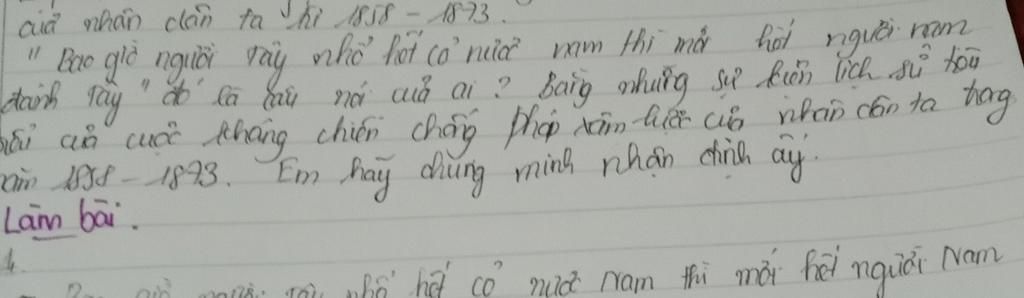 của nhân dân ta từ 1858 - 1873.
"Bao giờ người Tây nhổ hết cỏ nước nam thì mới hết người nam
đánh Tây" đó là câu nói của ai? Bằng những sự kiện lịch sử tiêu
của cuộc kháng chiến chống Pháp xâm lược của nhân dân ta trong
năm 1858 - 1873. Em hãy chứng minh nhận định ấy.
Làm bài.
1.
nhổ hết cỏ nước Nam thì mới hết người Nam